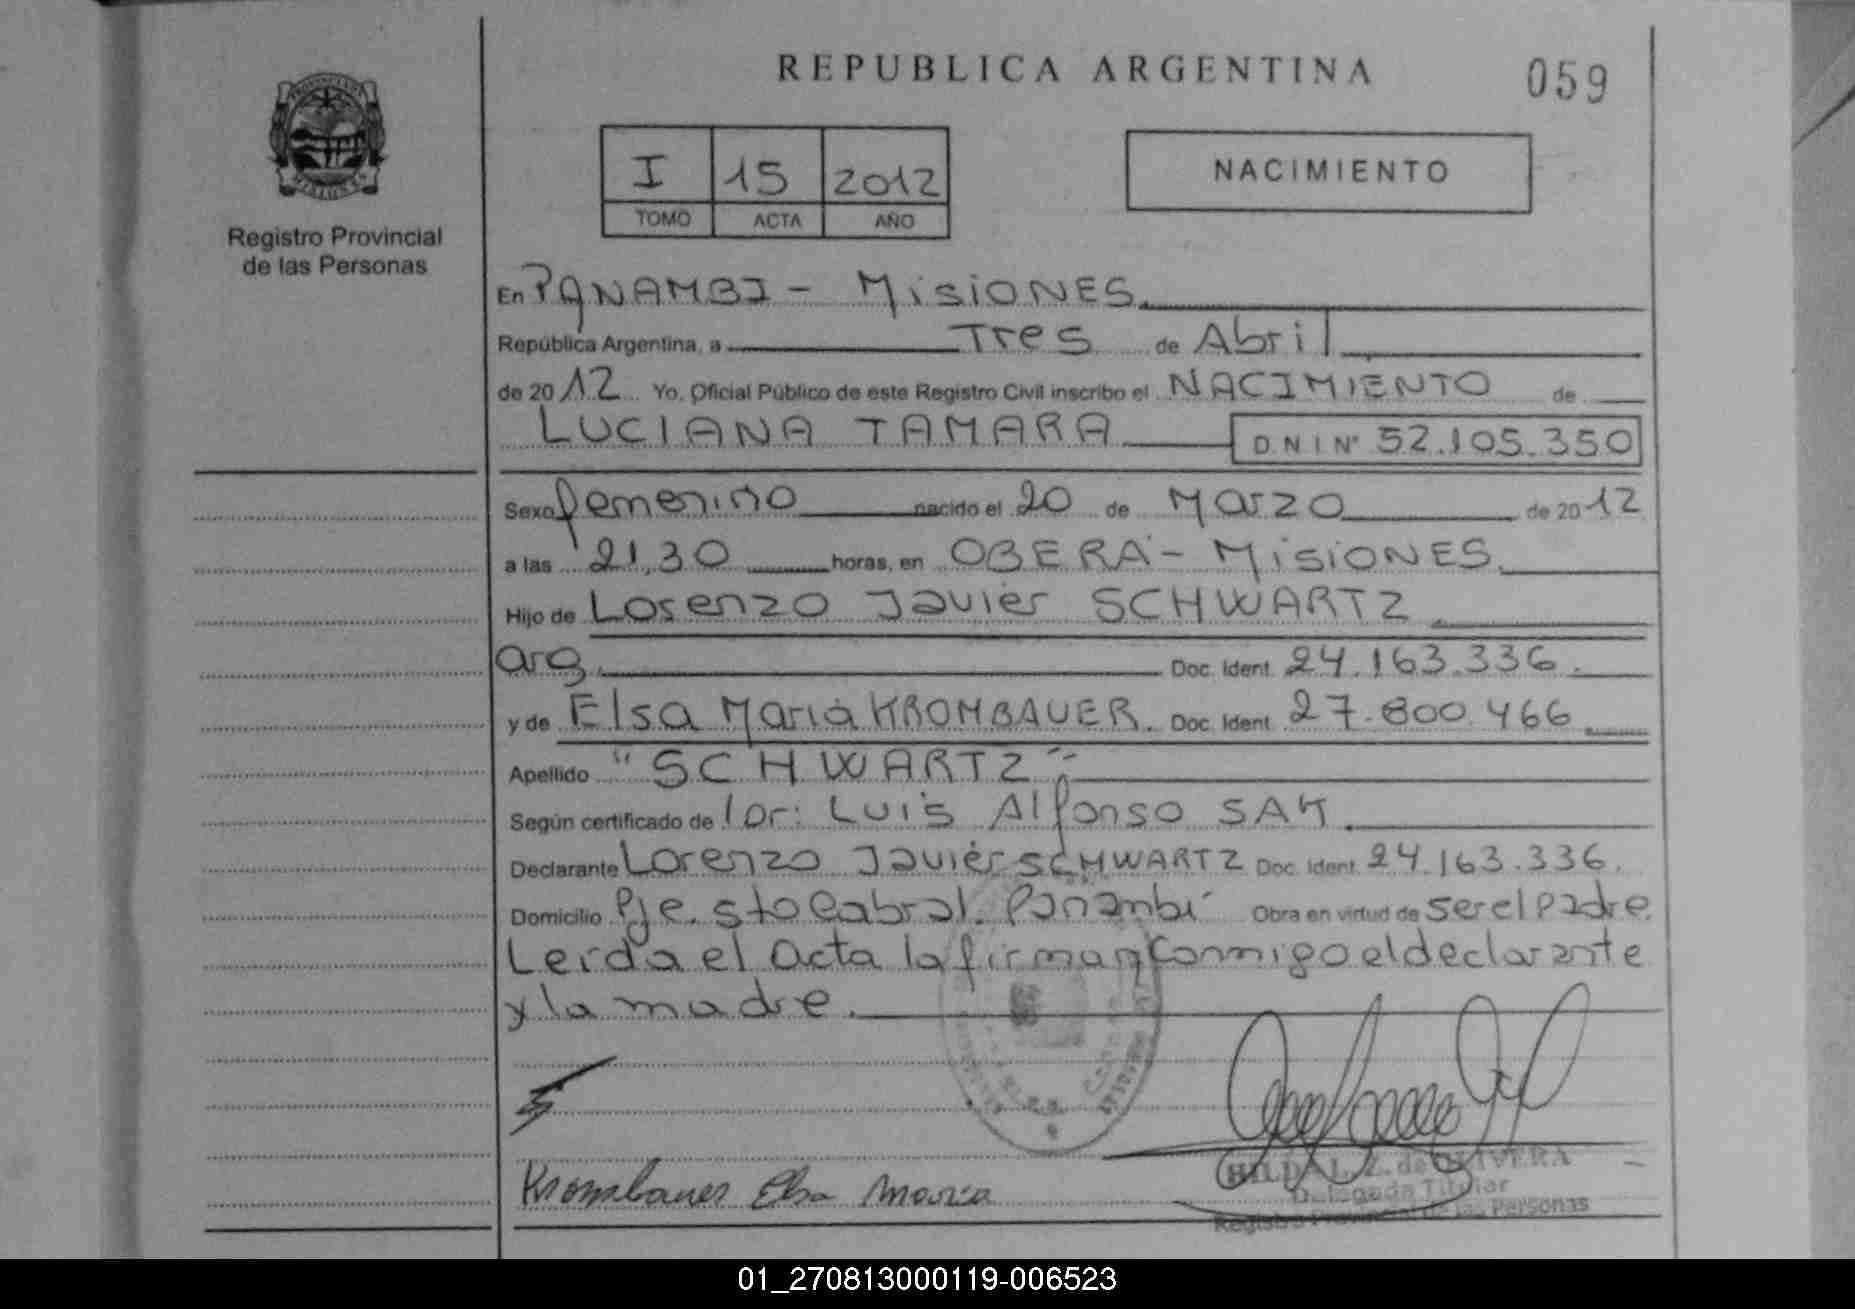 REPUBLICA ARGENTINA
059
I 15 2012
TOMO ACTA AÑO
NACIMIENTO
Registro Provincial
de las Personas
En PANAMBI - MisiONES.
República Argentina, a Tres de Abril
de 2012 Yo, Oficial Público de este Registro Civil inscribo el NACIMIENTO de
LUCIANA TAMARA D.N.I Nº 52.105.350
Sexo femenino nacido el 20 de Marzo de 2012
a las 21,30 horas, en OBERÁ - MisiONES.
Hijo de Lorenzo Javier SCHWARTZ
arg. Doc. Ident. 24.163.336.
y de Elsa María KROMBAUER. Doc. Ident. 27.800.466
Apellido "SCHWARTZ"-
Según certificado de Dr: Luis Alfonso SAK
Declarante Lorenzo Javier SCHWARTZ Doc. Ident. 24.163.336.
Domicilio Pje. Sto Cabral. Panambí Obra en virtud de ser el Padre.
Leída el Acta la firman Conmigo el declarante
y la madre.
Krombauer Elsa Maria
HILDA L. Z. de OLIVERA
Delegada Titular
Registro Provincial de las Personas
01_270813000119-006523